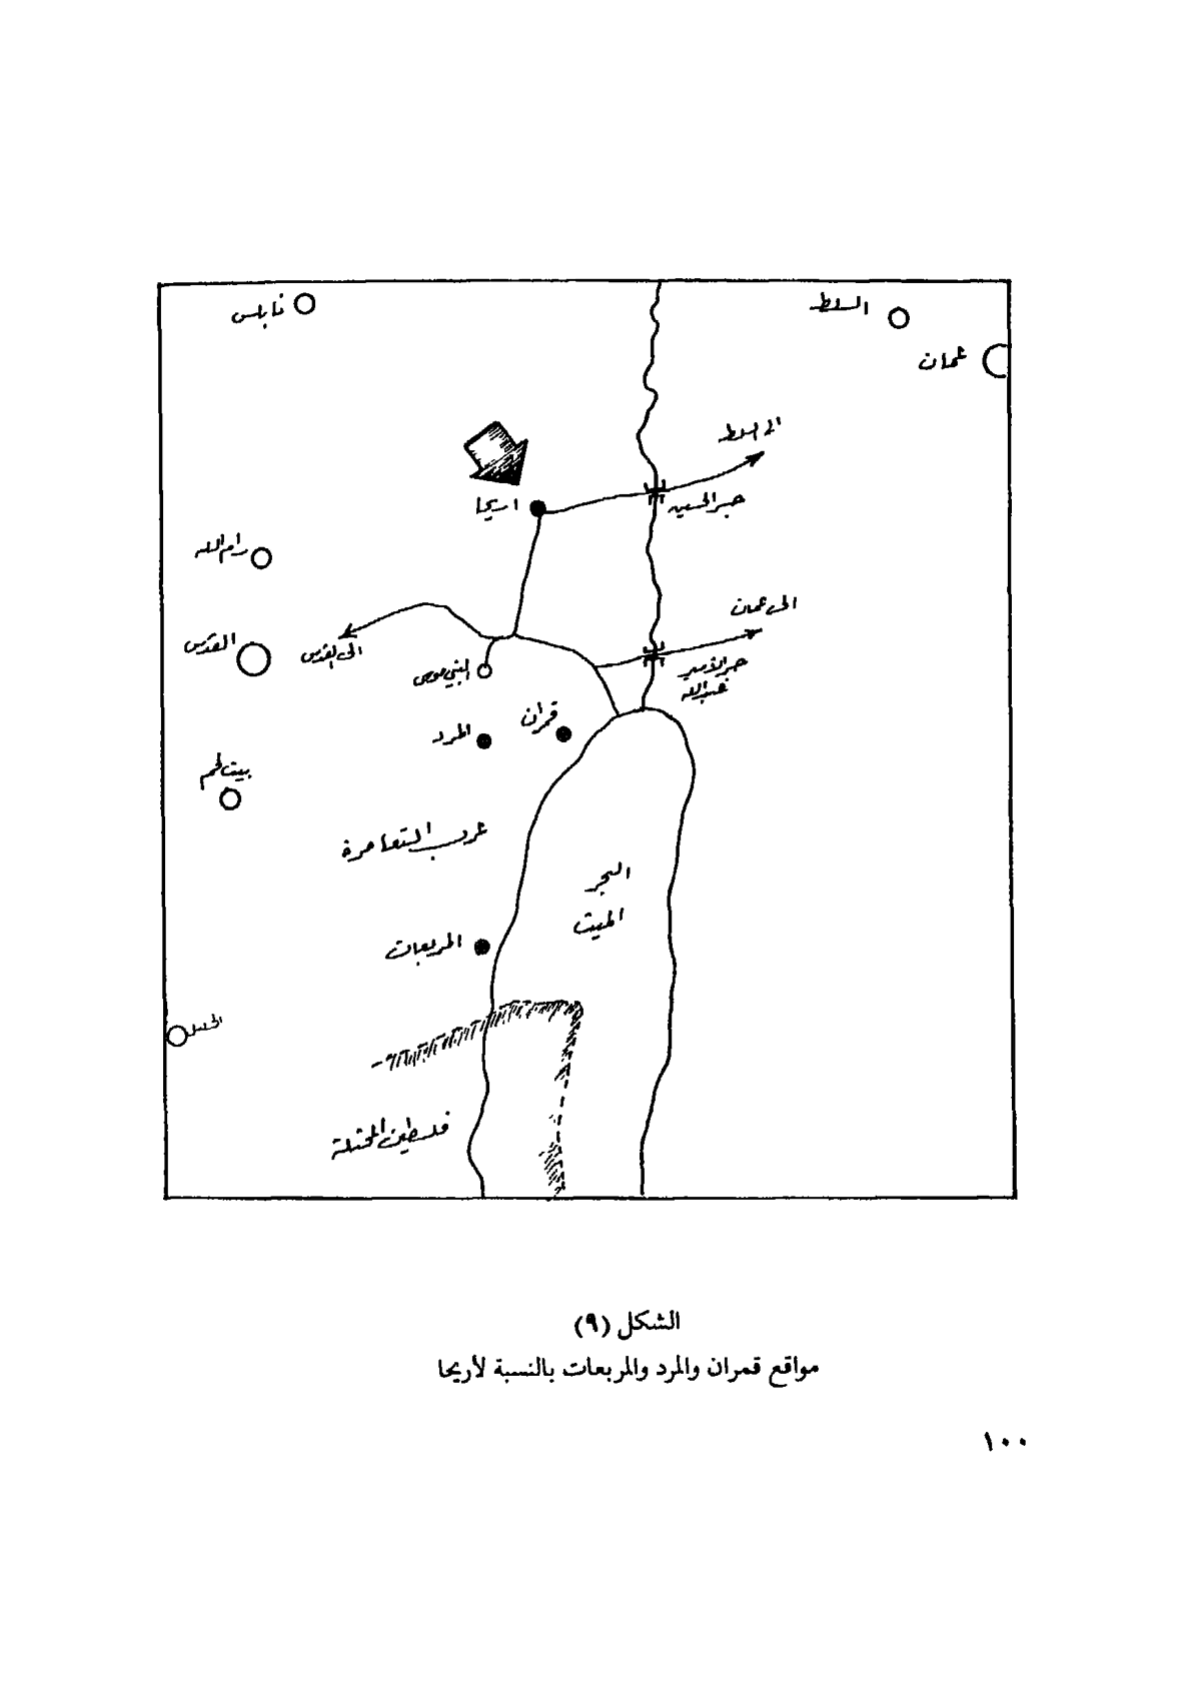 السلط
نابلس
عمان
الى السلط
اريحا
جسر الحسين
رام الله
الى عمان
القدس
الى القدس
النبي موسى
جسر الأمير
عبدالله
قمران
المرد
بيت لحم
عرب التعامرة
البحر
الميت
المربعات
الخليل
فلسطين المحتلة
الشكل (٩)
مواقع قمران والمرد والمربعات بالنسبة لأريحا
١٠٠